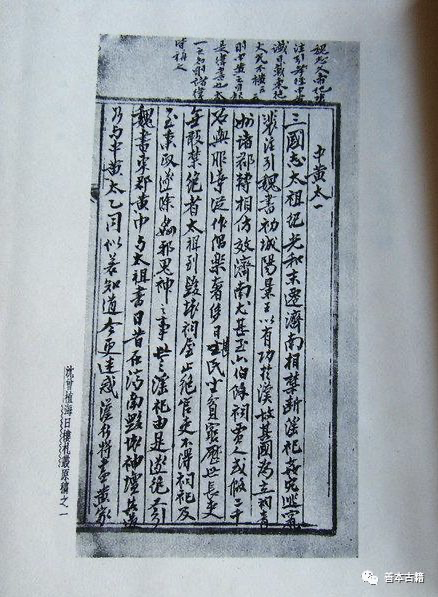 中黃太一
三國志太祖紀光和末遷濟南相禁斷淫祀姦宄逃竄
裴注引魏書初城陽景王以有功於漢故其國為立祠青
州諸郡轉相仿效濟南尤甚至六百餘祠賈人或假二千
石輿服導從作倡樂奢侈日甚民坐貧窮歷世長吏
無敢禁絕者太祖到毀壞祠屋止絕官吏不得祠祀及
至秉政遂除姦邪鬼神之事世之淫祀由是遂絕又引
魏書東郡黃巾與太祖書曰昔在濟南毀壞神壇其道
乃與中黃太乙同似若知道今更迷惑漢行將盡黃家
沈曾植海日樓札叢原稿之一
善本古籍